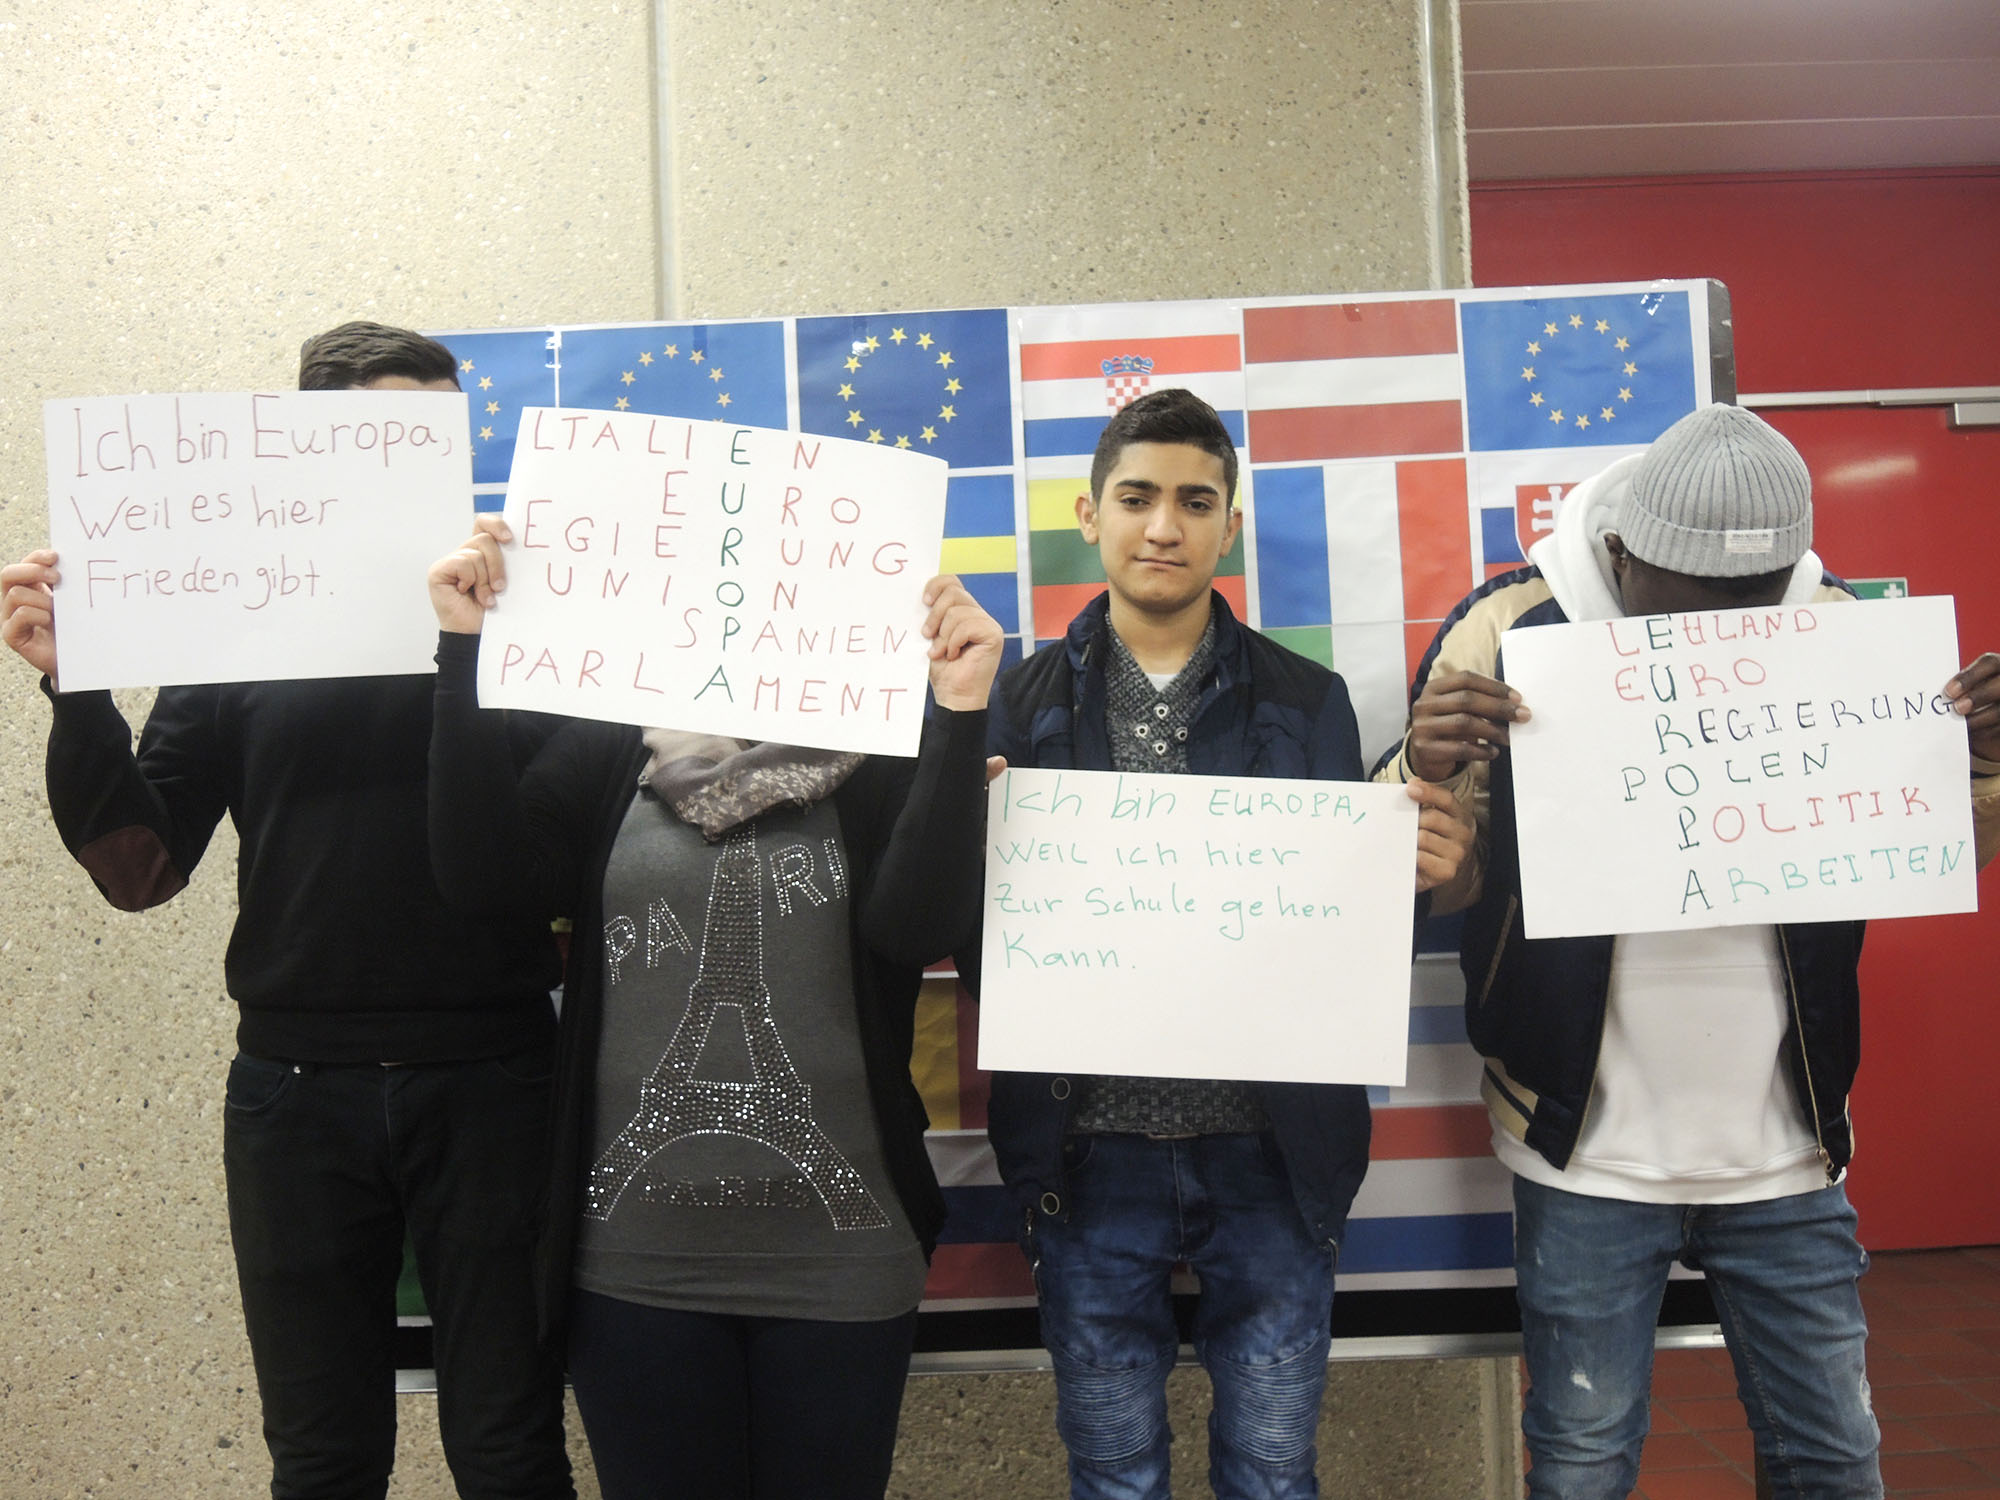 Ich bin Europa,
Weil es hier
Frieden gibt.
LTALIEN
EURO
EGIERUNG
UNION
SPANIEN
PARLAMENT
PARI
PARIS
Ich bin EUROPA,
WEIL ich hier
Zur Schule gehen
Kann.
LEHLAND
EURO
REGIERUNG
POLEN
POLITIK
ARBEITEN